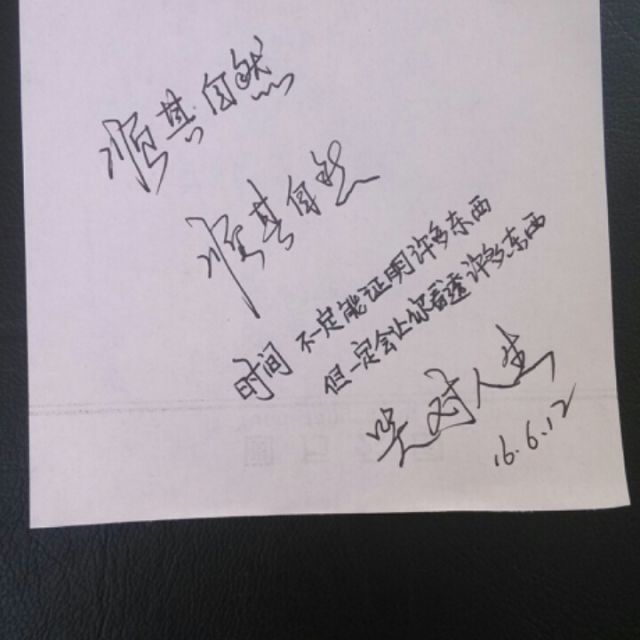 顺其自然
顺其自然
时间 不一定能证明许多东西
但一定会让你看透许多东西
笑对人生
16.6.12